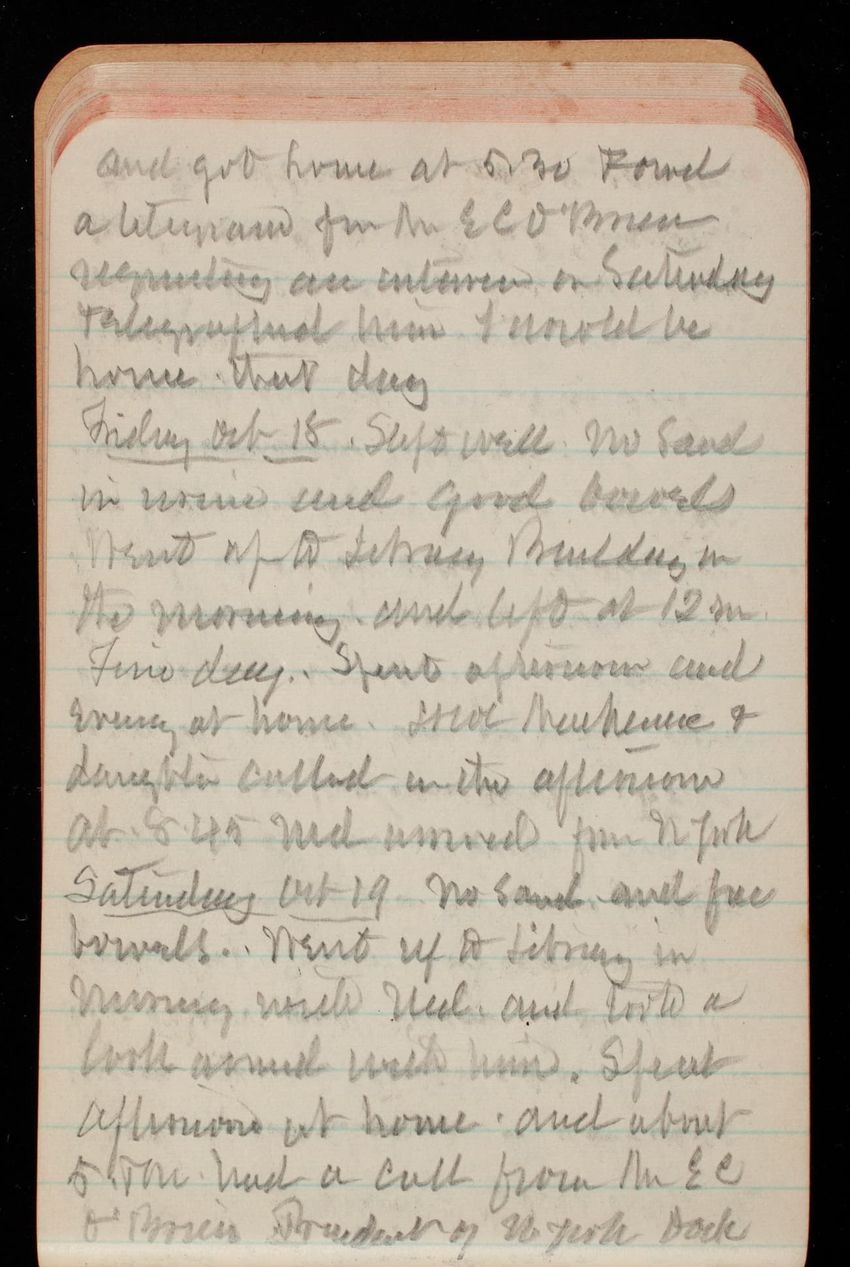 and got home at 5.30 Found
a telegram from Mr E C O'Brien
requesting an interview on Saturday
Telegraphed him I would be
home that day
Friday Oct 18. Slept well. No Sand
in urine and good bowels
Went up to Library Building in
the morning. and left at 12 m.
Fine day.. Spent afternoon and
Eveng at home.
daughter called in the afternoon
at 8.45 Ned arrived from N York
Saturday Oct 19 No Sand. and free
bowels.. Went up to Library in
Morning with Ned. and took a
look around with him. Spent
afternoon at home. and about
5. had a call from Mr E C
O'Brien President of N York Dock